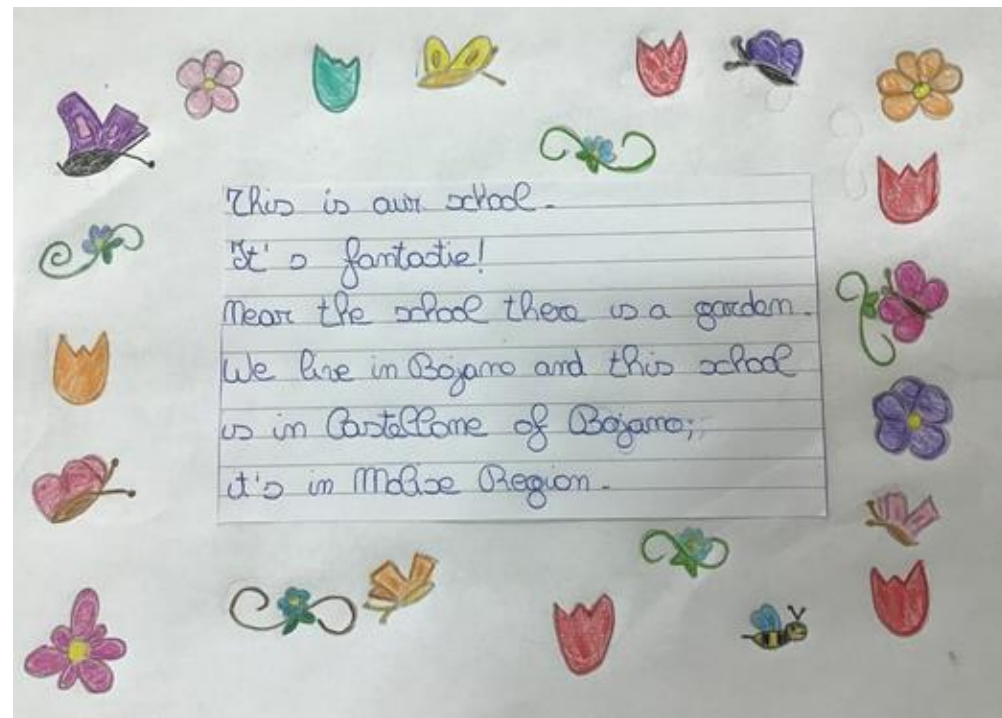 This is our school.
It's fantastic!
Near the school there is a garden.
We live in Bojano and this school
is in Castellone of Bojano;
it's in Molise Region.